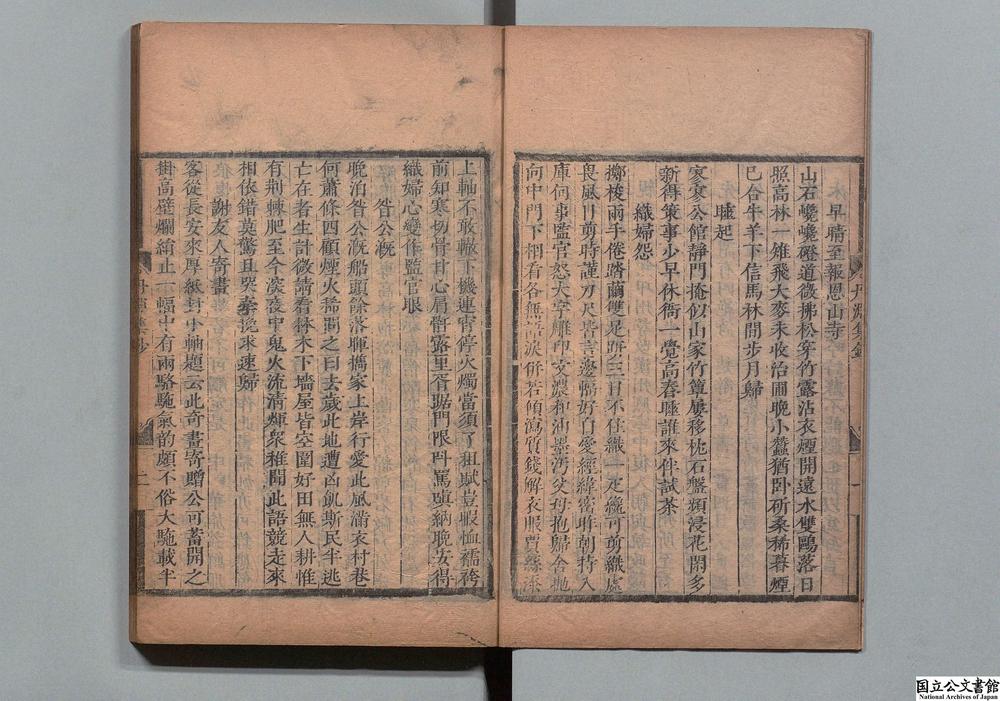 早晴至報恩山寺
山石巉巉磴道微拂松穿竹露沾衣煙開遠水雙鷗落日
照高林一雉飛大麥未收治圃晚小蠶猶卧斫桑稀暮煙
已合牛羊下信馬林間步月歸
睡起
寂寂公館靜門掩似山家竹簟屢移枕石盤頻浸花閑多
新得策事少早休衙一覺高舂睡誰來伴試茶
織婦怨
擲梭兩手倦踏䌸雙足趼三日不住織一疋纔可剪織處
畏風日剪時謹刀尺皆言邊幅好自愛經緯密昨朝持入
庫何事監官怒大字雕印文濃和油墨污父母抱歸舍抛
向中門下相看各無語淚併若傾瀉質錢解衣服買絲添
上軸不敢輟下機連宵停火燭當須了租賦豈暇恤襦袴
前知寒切骨甘心肩骭露里胥踞門限呌罵嗔納晚安得
織婦心變作監官眼
晚泊公溉船頭餘落暉攜家上岸行愛此風滿衣村巷
何蕭條四顧煙火稀問之曰去歲此地遭凶飢斯民半逃
亡在者生計微請看林木下墻屋皆空圍好田無人耕惟
有荆棘肥至今深夜中鬼火流清輝衆稚聞此語競走來
相依錯莫驚且哭牽挽求速歸
謝友人寄畫
客從長安來厚紙封小軸題云此奇畫寄贈公可蓄開之
掛高壁爛綃止一幅中有兩駱駞氣韵頗不俗大駞載半
二
国立公文書館
National Archives of Japan